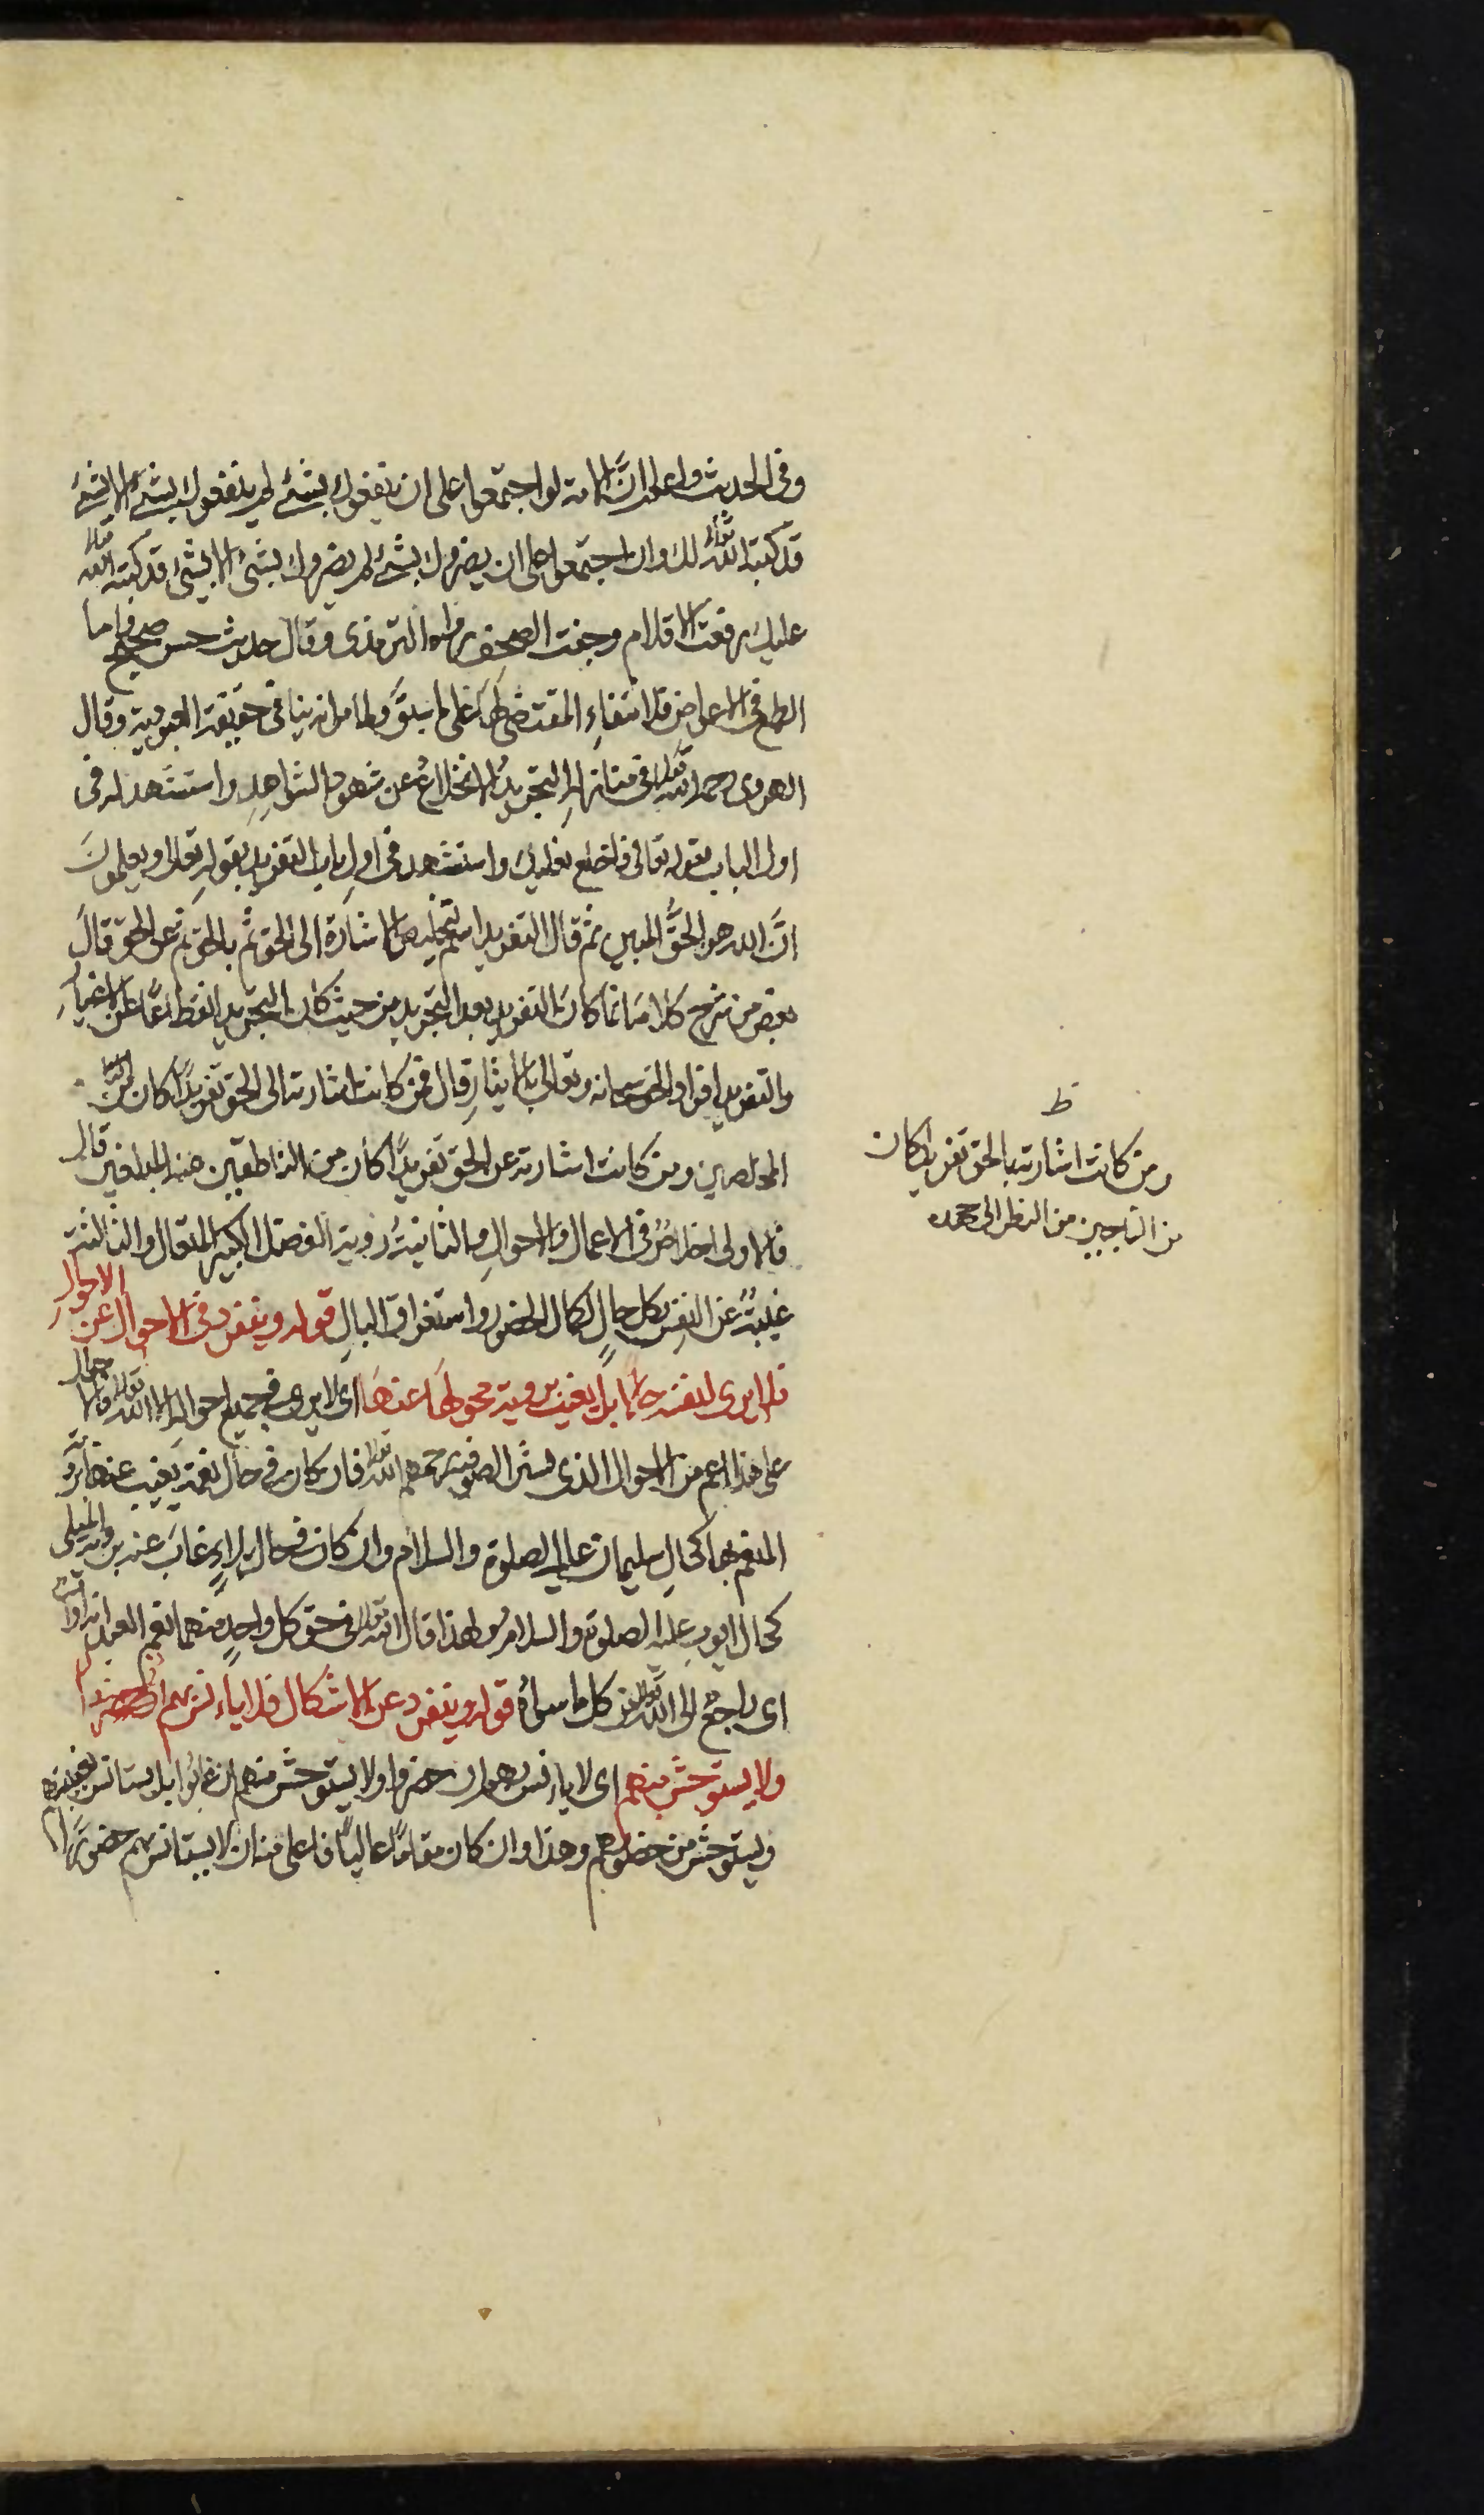 وفى الحديث واعلم ان الامة لو اجتمعوا على ان ينفعوك بشئ لم ينفعوك بشئ الا بشئ
قد كتبه الله تعالى لك وان اجتمعوا على ان يضروك بشئ لم يضروك بشئ الا بشئ قد كتبه الله تعالى
عليك رفعت الاقلام وجفت الصحف رواه الترمذى وقال حديث حسن صحيح واما
الطمع فى الاعواض فلانتفاء المقتضى لها على ما سبق ولما مر انه ينافى حقيقة العبودية وقال
الهروى رحمه الله تعالى فى منازله التجريد الانخلاع عن شهود الشواهد واستشهد له فى
اول الباب بقوله تعالى فاخلع نعليك واستشهد فى اول باب التفريد بقوله تعالى ويعلمون
ان الله هو الحق المبين ثم قال التفريد اسم لتخليص الاشارة الى الحق ثم بالحق ثم عن الحق قال
بعض من شرح كلامه انما كان التفريد بعد التجريد من حيث كان التجريد انقطاعا عن الاغيار
والتفريد افراد الحق سبحانه وتعالى بالايثار قال فمن كانت اشارته الى الحق تفريدا كان من
المخلصين ومن كانت اشارته عن الحق تفريدا كان من الناطقين عنه المبلغين قال
فالاولى اخلاص فى الاعمال والاحوال والثانية رؤية الفضل الكبير المتعال والثالثة
غيبة عن النفس بكل حال لكمال الحضور واستغراق البال قوله وينفرد فى الاحوال عن الاحوال
فلا يرى لنفسه حالا بل يغيب برؤية محولها عنها اى لا يرى فى جميع احواله الا الله تعالى والحال
على هذا اعم من الاحوال الذى الصوفية رحمهم الله تعالى فان كان فى حال نعمة يغيب عنها برؤية
المنعم بها كحال سليمان عليه الصلوة والسلام وان كان فى حال بلاء غاب عنه برؤية المبلى
كحال ايوب عليه الصلوة والسلام ولهذا قال الله تعالى فى حق كل واحد منهما نعم العبد انه اواب
اى راجع الى الله تعالى عن كل ما سواه قوله وينفرد عن الاشكال فلا يانس بهم
ولا يستوحش منهم اى لا يانس بهم ان حضروا ولا يستوحش منهم ان غابوا بل يستانس بغيبتهم
ويستوحش من حضورهم وهذا وان كان مقاما عاليا فاعلى منه ان لا يستانس بهم حضورا
ظ
ومن كانت اشارته بالحق تفريدا كان
من الناجين من النظر الى